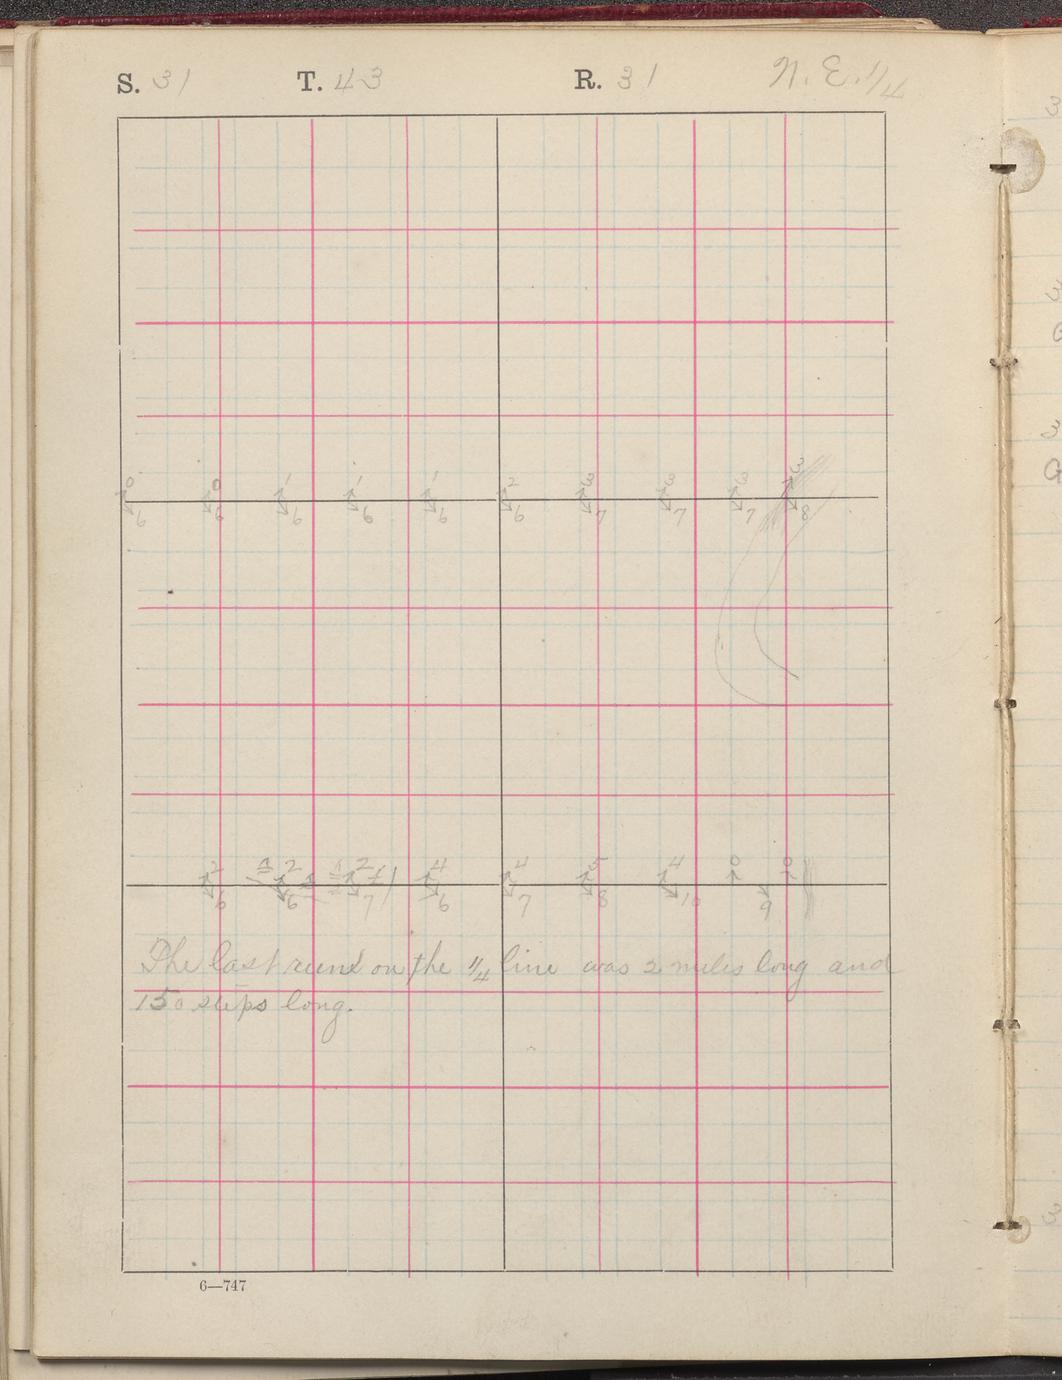 S. 31 T. 43 R. 31 N. E. 1/4
0 0 1 1 1 2 3 3 3 3
6 6 6 6 6 6 7 7 7 8
2 2 2 4 4 5 4 0 0
6 6 7 6 7 8 10 9
The last runs on the 1/4 line was 2 miles long and
150 steps long.
6—747